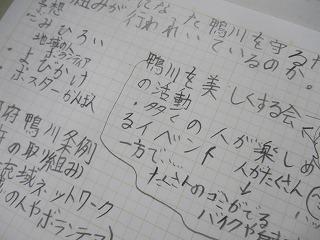 組みが
になった 鴨川を守るた
予想 行われているのか。
ごみひろい
地域の人
ボランティア
・よびかけ
・ポスター かんばん
鴨川を美しくする会
の活動
・多くの人が楽しめ
るイベント 人がたくさん
一方で… ↓
たくさんのゴミがでる
バイクやさ
府 鴨川条例
の取り組み)
流域ネットワーク
の人やボランティア)